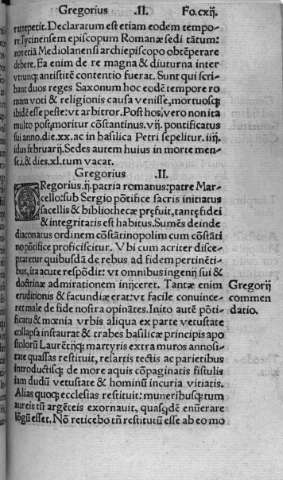 Gregorius .II. Fo.cxij.
runt repetit. Declaratum est etiam eodem tempo-
re, Ticinensem episcopum Romanæ sedi tãtum:
nõ etiã Mediolanensi archiepiscopo obtẽperare
debere. Ea enim de re magna & diuturna inter
vtrunqƺ antistitẽ contentio fuerat. Sunt qui scri-
bant duos reges Saxonum hoc eodẽ tempore ro
mam voti & religionis causa venisse, mortuosqƺ
ibidẽ esse peste: vt arbitror. Post hos, vero non ita
multo post, moritur cõstantinus. vij. pontificatus
sui anno. die. xx. ac in basilica Petri sepelitur. iiij.
idus februarij. Sedes autem huius in morte men-
se. i. & dies. xl. tum vacat.
Gregorius .II.
GRegorius. ij. patria romanus: patre Mar-
cello: sub Sergio põtifice sacris initiatus
sacellis & bibliothecæ pręfuit, tantę fidei
& integritatis est habitus. Sumẽs deinde
diaconatus ordinem cõstãtinopolim cum cõstãti
no põtifice proficiscitur. Vbi cum acriter disce-
ptaretur quibusdã de rebus ad fidem pertinẽti-
bus, ita acute respõdit: vt omnibus ingenij sui &
doctrinæ admirationem inijceret. Tantæ enim
eruditionis & facundiæ erat: vt facile conuince-
ret male de fide nostra opinãtes. Inito autẽ põti-
ficatu & mœnia vrbis aliqua ex parte vetustate
collapsa instaurat & trabes basilicæ principis apo
stolorũ Laurẽtijqƺ martyris extra muros annosi-
tate quassas restituit, resartis tectis ac parietibus
introductisqƺ de more aquis cõpaginatis fistulis
iam dudũ vetustate & hominũ incuria vitiatis.
Alias quoqƺ ecclesias restituit: muneribusqƺ tum
aureis tũ argẽteis exornauit, quasqƺ dẽ enũerare
lõgũ esset. Nõ reticebo tñ restitutũ esse ab eo mo
Gregorij
commen
datio.